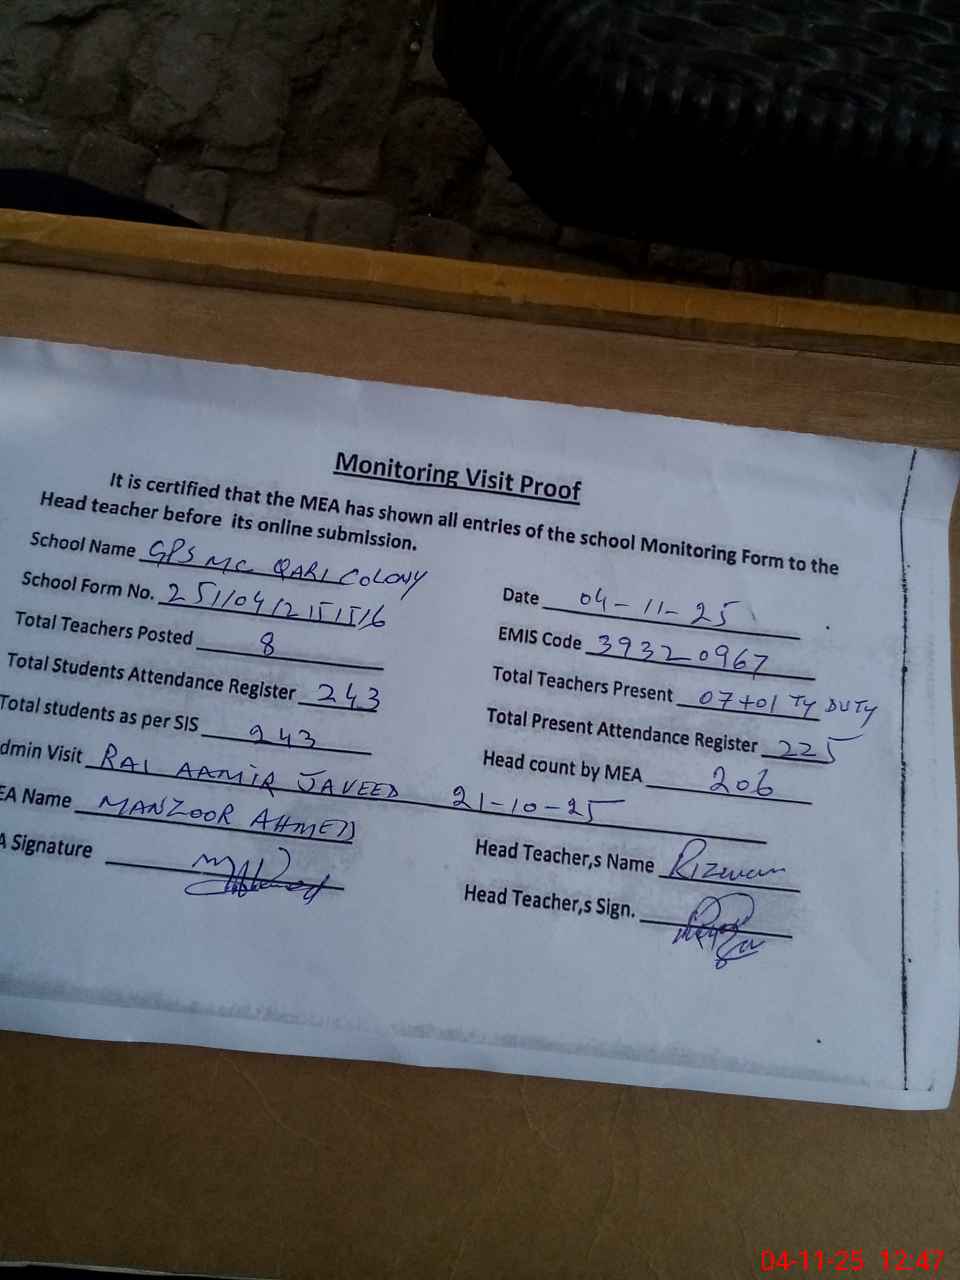 Monitoring Visit Proof
It is certified that the MEA has shown all entries of the school Monitoring Form to the
Head teacher before its online submission.
School Name GPS MC QARI COLONY
Date 04-11-25
School Form No. 25110412151516
EMIS Code 39320967
Total Teachers Posted 8
Total Teachers Present 07+01 TY DUTY
Total Students Attendance Register 243
Total Present Attendance Register 225
Total students as per SIS 243
Head count by MEA 206
dmin Visit RAI AAMIR JAVEED 21-10-25
EA Name MANZOOR AHMED
Head Teacher,s Name Rizwan
A Signature
Head Teacher,s Sign.
04-11-25 12:47